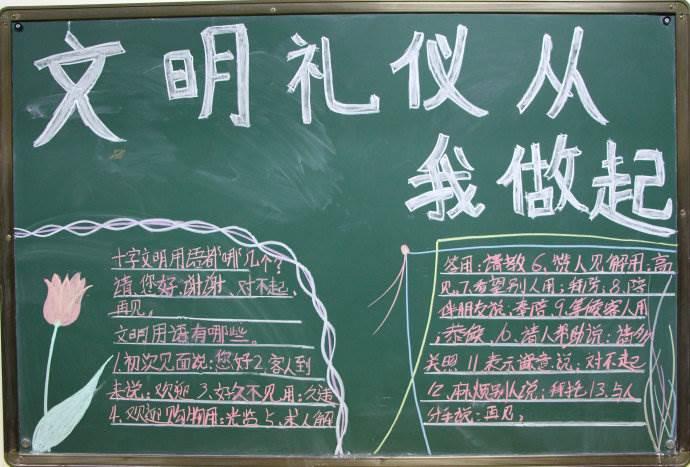 文明礼仪从
我做起
十字文明用语都哪几个?
请、您好、谢谢、对不起、
再见。
文明用语有哪些。
1.初次见面说:您好2.客人到
来说:欢迎 3.好久不见用:久违
4.欢迎购物用:光临 5、求人解
答用:请教 6、说人见解用:高
见、7.希望别人用:拜 8.陪
伴朋友说:奉陪 9.等候客人用
:恭候、10、请人帮助说:请多
关照 11.表示歉意说:对不起
12、麻烦别人说:拜托 13.与人
分手说:再见。